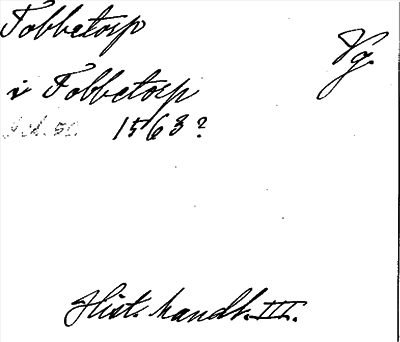 Tobbetorp
Vg.
i Tobbetorp
1563?
Hist. handl. III.